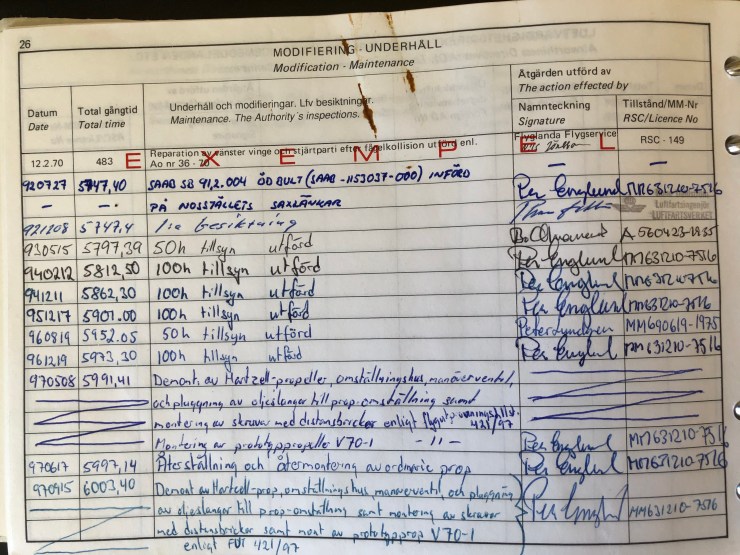 26
MODIFIERING - UNDERHÅLL
Modification - Maintenance
Datum
Date
Total gångtid
Total time
Underhåll och modifieringar. Lfv besiktningar.
Maintenance. The Authority's inspections.
Åtgärden utförd av
The action effected by
Namnteckning
Signature
Tillstånd/MM-Nr
RSC/Licence No
12.2.70 483 Reparation av vänster vinge och stjärtparti efter fågelkollision utförd enl. Flyglanda Flygservice RSC - 149
Ao nr 36 - 70
E X E M P E L
920727 5747,40 SAAB SB 91,2.004 ÖD BULT (SAAB-1153037-000) INFÖRD Per Englund MM631210-7516
— — PÅ NOSSTÄLLETS SAXLÄNKAR Luftfartsinspektör
LUFTFARTSVERKET
921208 5747.4 besiktning
930515 5797,39 50h tillsyn utförd A.560423-1855
940212 5812,50 100h tillsyn utförd Per Englund MM631210-7516
941211 5862,30 100h tillsyn utförd Per Englund MM631210-7516
951217 5901.00 100h tillsyn utförd Per Englund MM631210-7516
960819 5952.05 50h tillsyn utförd Peter Lundgren MM690619-1975
961219 5973,30 100h tillsyn utförd Per Englund MM631210-7516
970508 5991,41 Demont. av Hartzell-propeller, omställningshus, manöverventil,
och pluggning av oljeslangar till prop-omställning samt
montering av skruvar med distansbrickor enligt 421/97
Montering av prototyppropeller V70-1 - 11 - Per Englund MM631210-7516
970617 5997,14 Återställning och återmontering av ordinarie prop Per Englund MM631210-7516
970915 6003,40 Demont av Hartzell-prop, omställningshus, manöverventil, och pluggning
av oljeslangar till prop-omställning samt montering av skruvar Per Englund MM631210-7516
med distansbrickor samt mont av prototypprop V70-1
enligt FUT 421/97